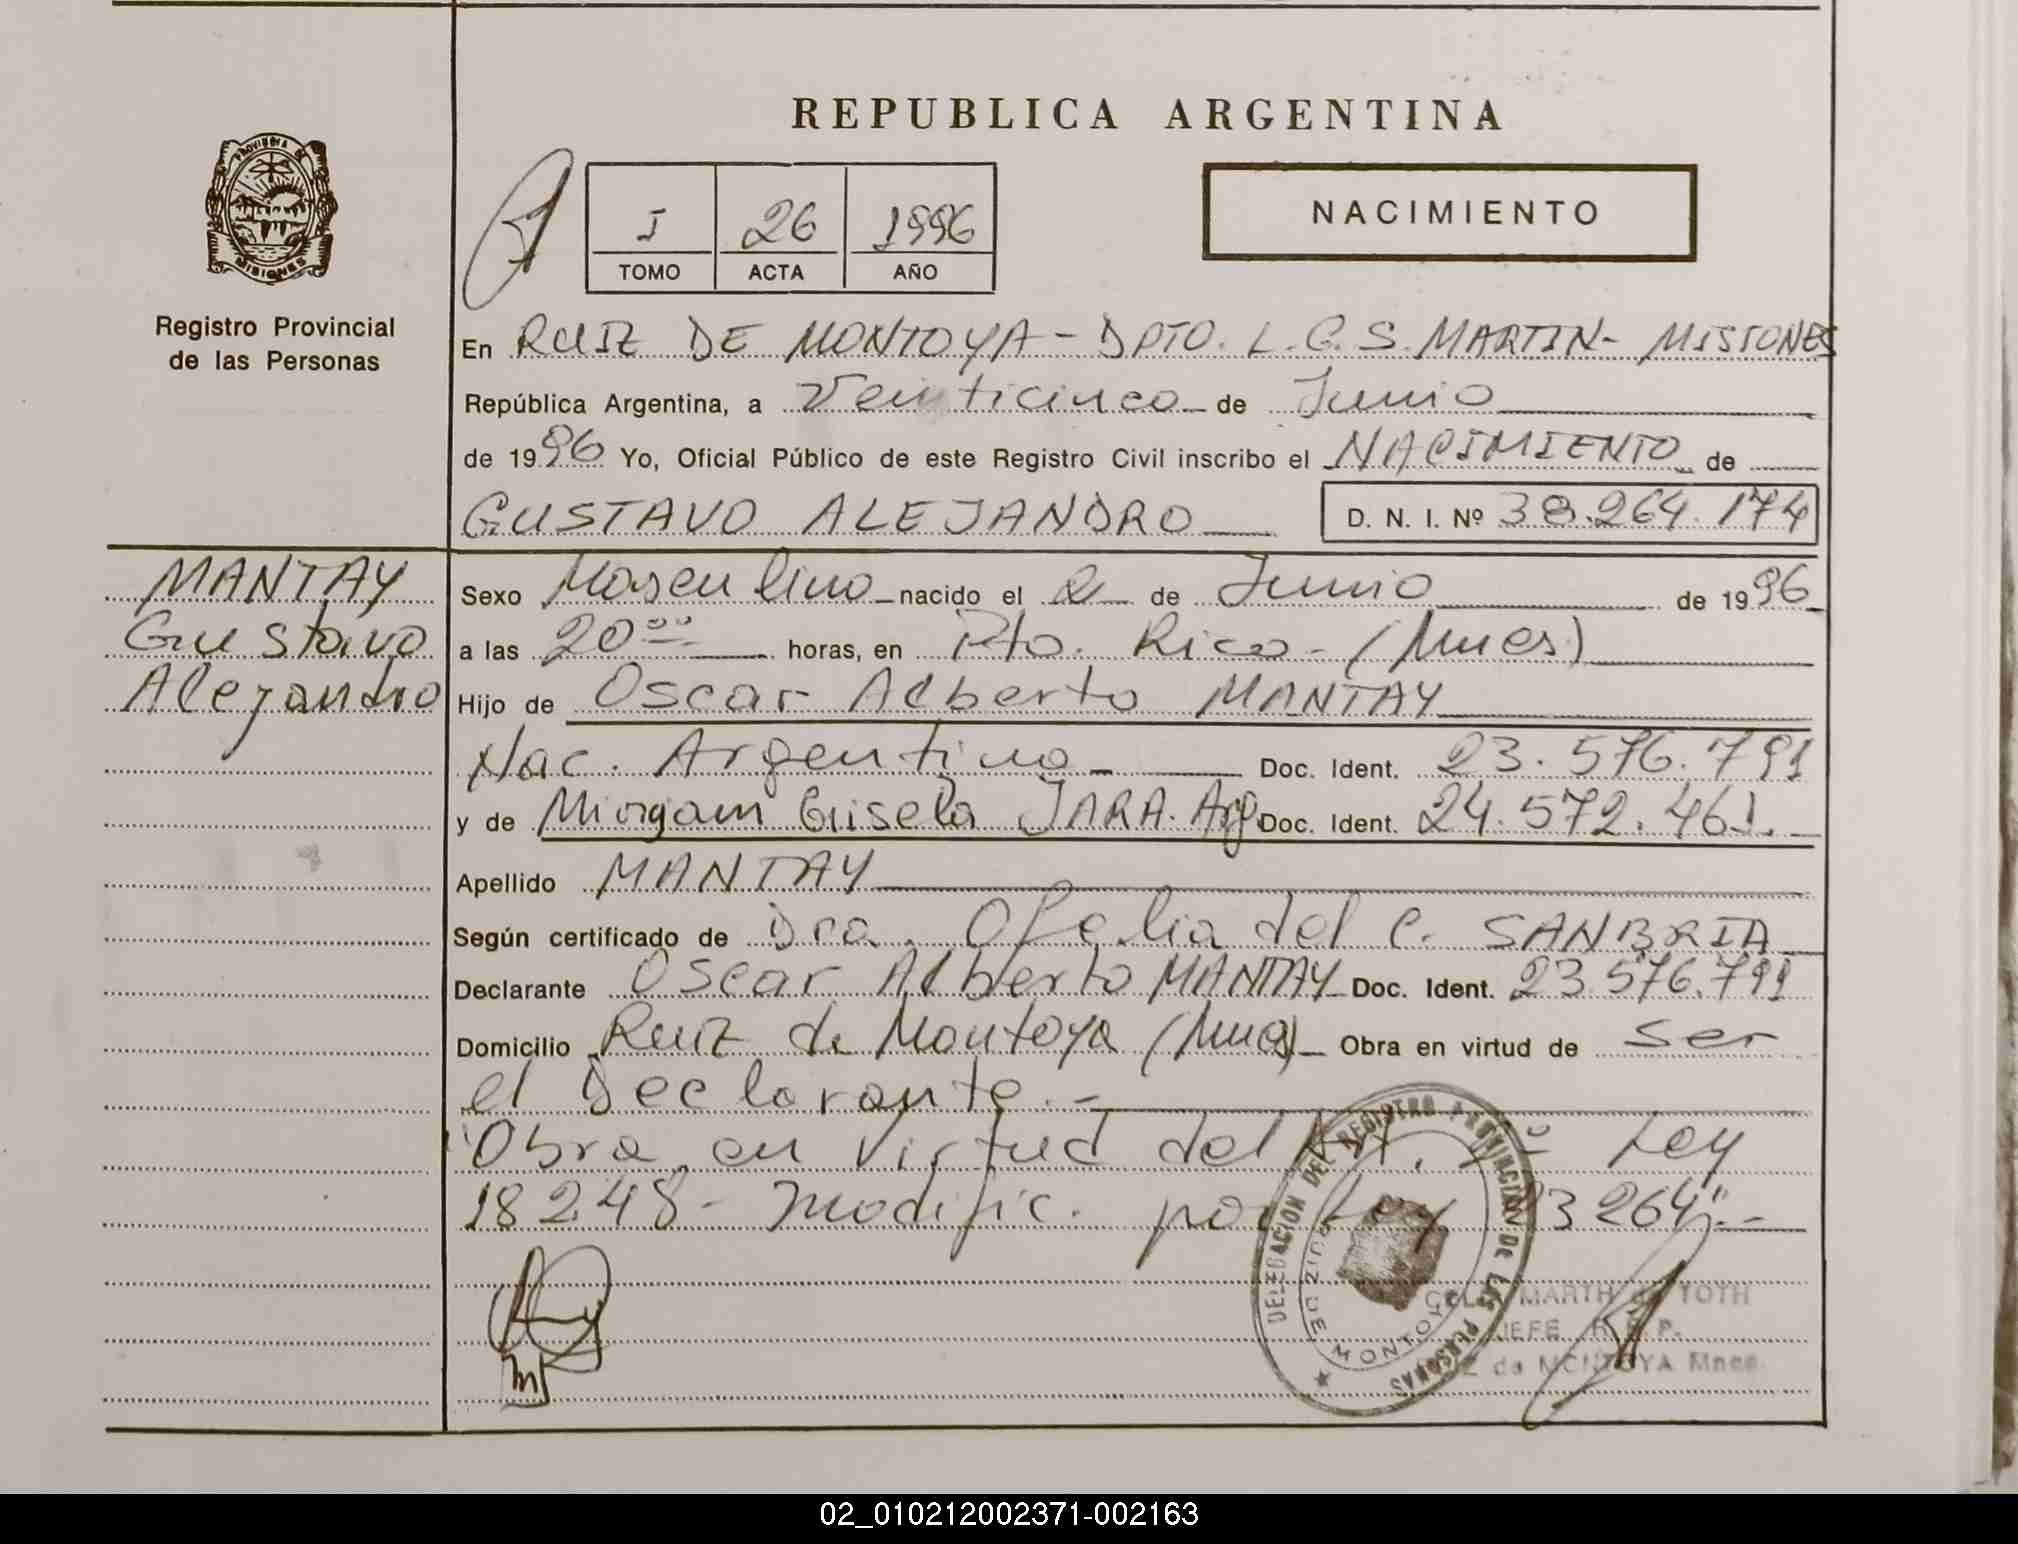 REPUBLICA ARGENTINA
PROVINCIA DE
MISIONES
Registro Provincial
de las Personas
I 26 1996
TOMO ACTA AÑO
NACIMIENTO
En RUIZ DE MONTOYA - DPTO. L. G. S. MARTIN - MISIONES
República Argentina, a Veinticinco de Junio
de 1996 Yo, Oficial Público de este Registro Civil inscribo el NACIMIENTO de
GUSTAVO ALEJANDRO D. N. I. Nº 38.264.174
MANTAY
Gustavo
Alejandro
Sexo Masculino nacido el 2 de Junio de 1996
a las 20 00 horas, en Pto. Rico - (Mnes)
Hijo de Oscar Alberto MANTAY
Nac. Argentino Doc. Ident. 23.576.791
y de Grisela JARA. Arg. Doc. Ident. 24.572.461.
Apellido MANTAY
Según certificado de Dra. Ofelia del C. SANBRIA
Declarante Oscar Alberto MANTAY Doc. Ident. 23.576.791
Domicilio Ruiz de Montoya (Mnes) Obra en virtud de ser
el Declarante.-
"Obra en virtud del Art. Ley
18248 - modific. por Ley 23264".-
DELEGACION DEL REGISTRO PROVINCIAL DE LAS PERSONAS
RUIZ DE MONTOYA
MARTH TOTH
JEFE R. P.
de MONTOYA Mnes.
02_010212002371-002163